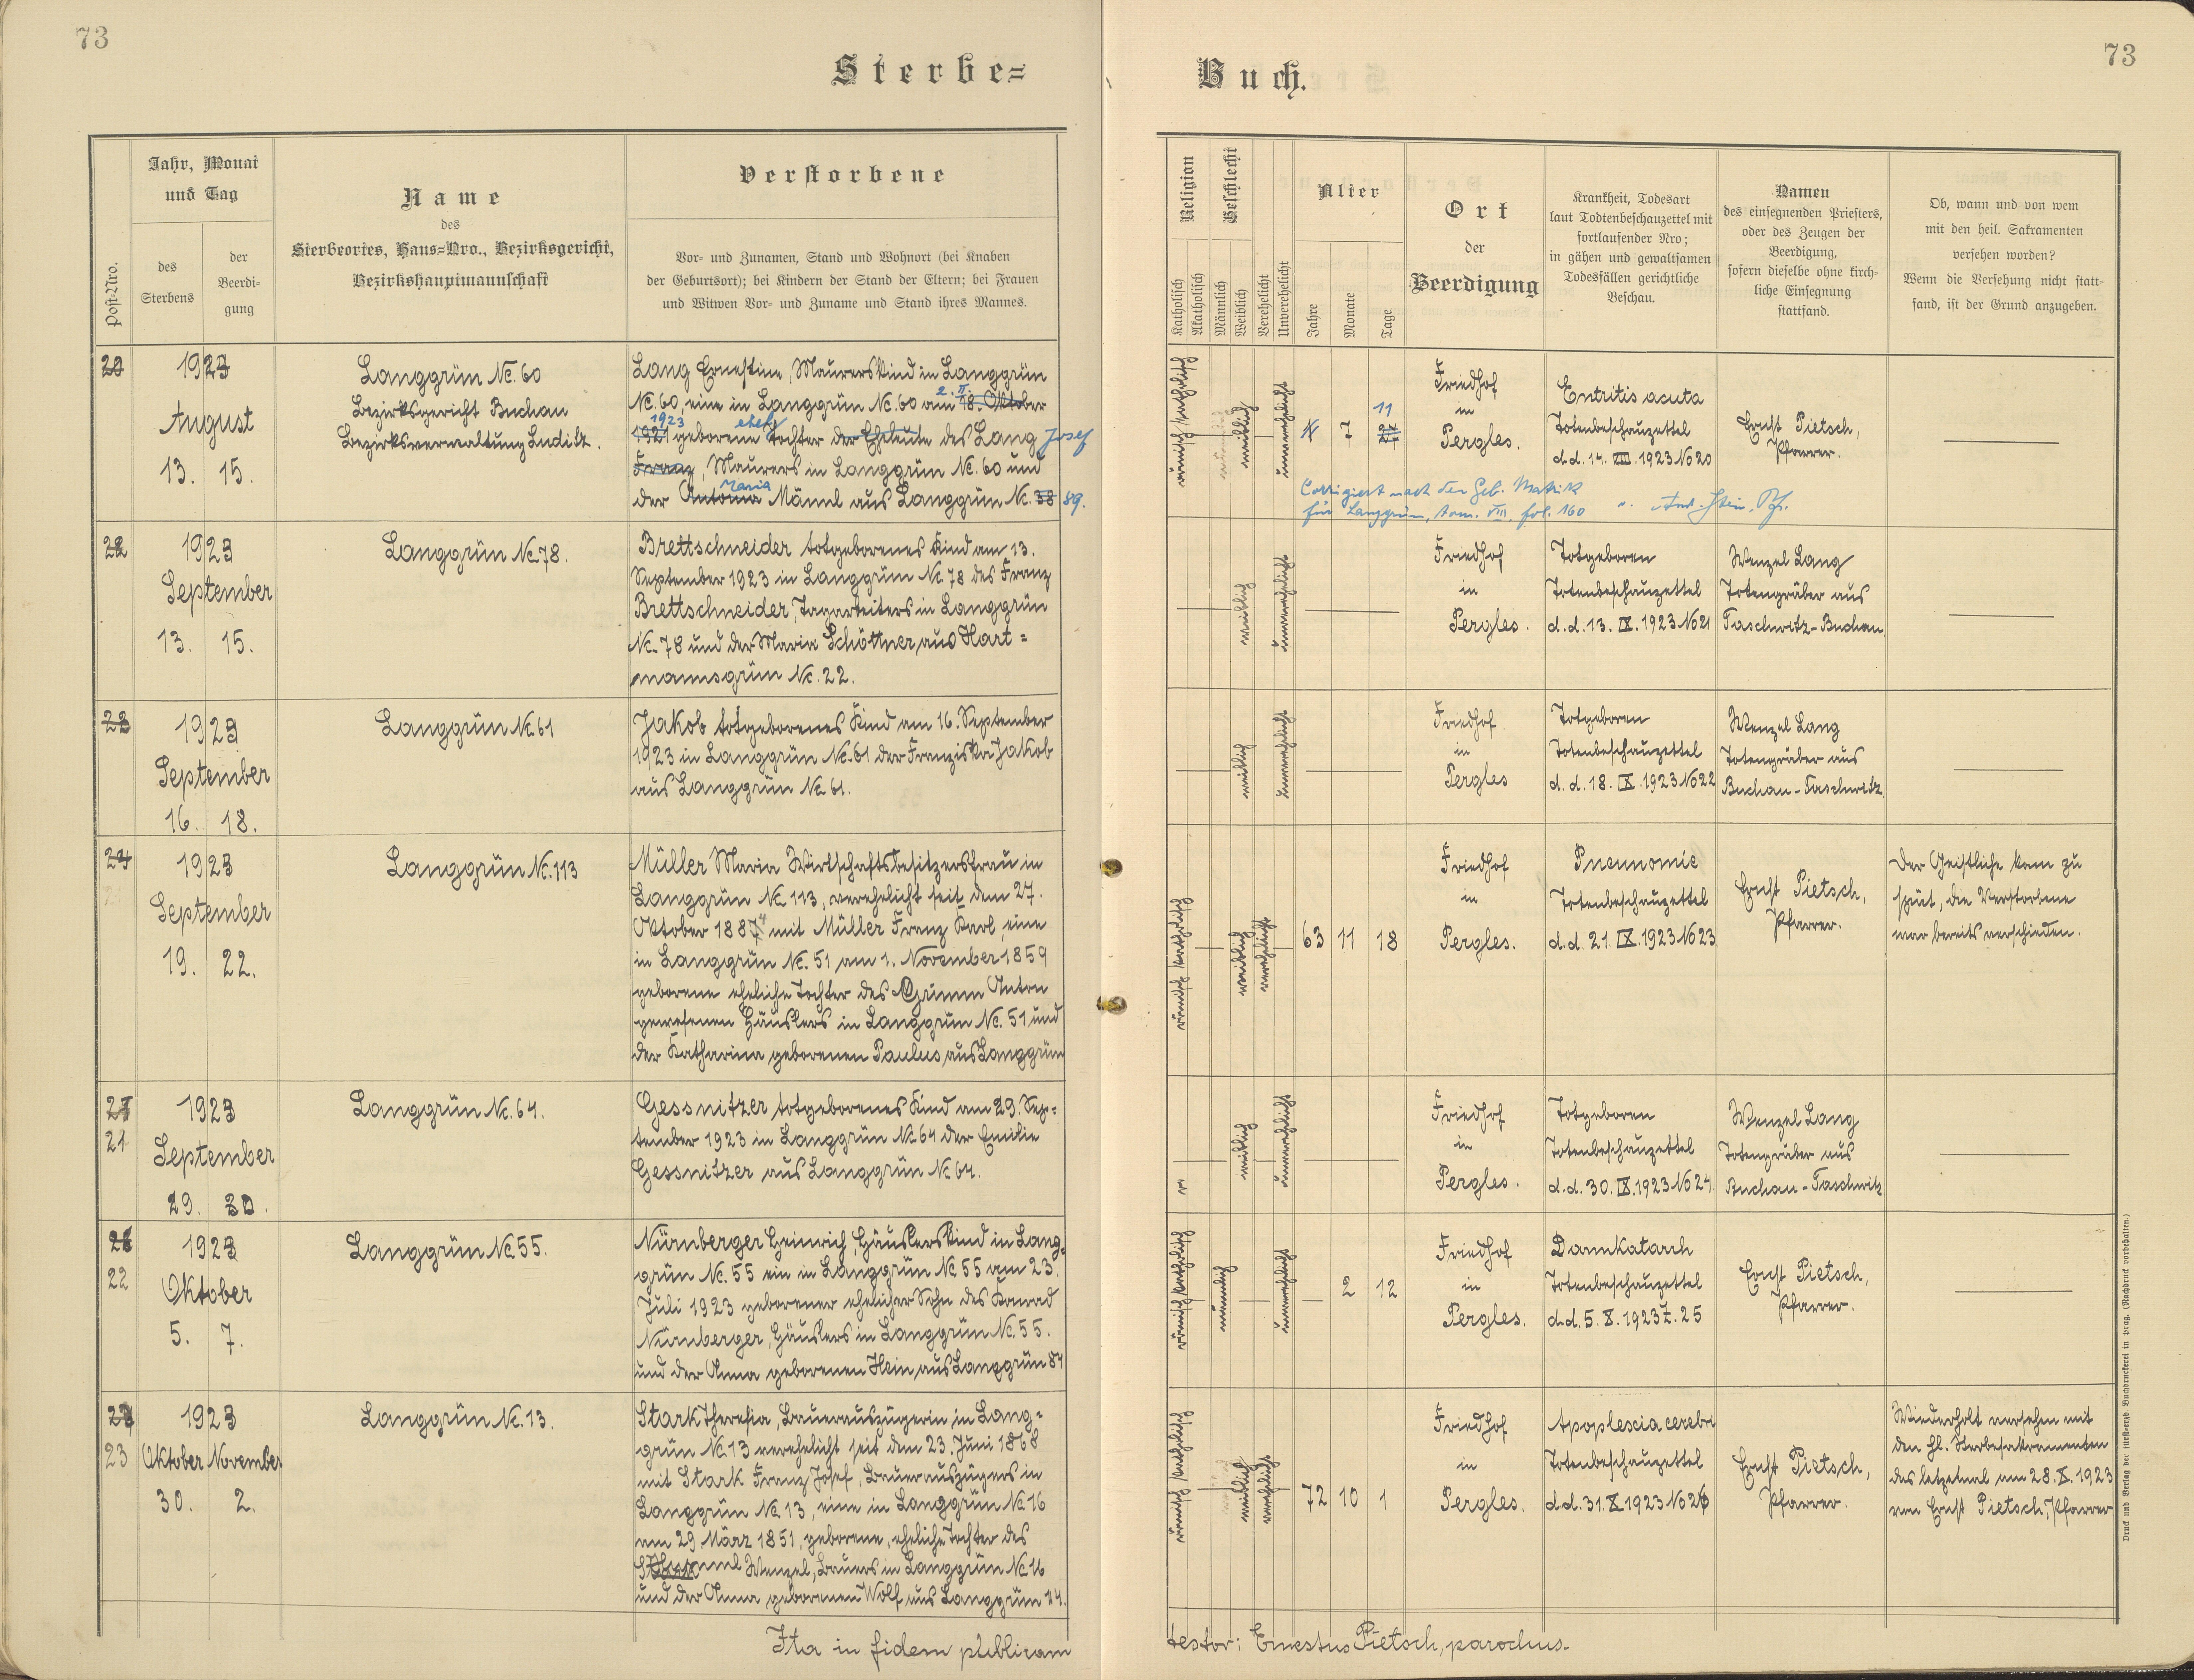 73
Sterbe=
Jahr, Monat
und Tag
Name
des
Sterbeortes, Haus=Nro., Bezirksgericht,
Bezirkshauptmannschaft
Verstorbene
Post-Nro.
des
Sterbens
der
Beerdi-
gung
Vor- und Zunamen, Stand und Wohnort (bei Knaben
der Geburtsort); bei Kindern der Stand der Eltern; bei Frauen
und Witwen Vor- und Zuname und Stand ihres Mannes.
1923
August
13. 15.
Langgrün No. 60
Bezirksgericht Buchau
Bezirksverwaltung Luditz.
Lang Ernestine, Maurerskind in Langgrün
No. 60, eine in Langgrün No. 60 am 2. II. 18. Oktober
1923 1921 geborene ehel. Tochter der Eheleute des Lang Josef
Franz, Maurers in Langgrün No. 60 und
der Antonia Maria Männl aus Langgrün No. 38 89.
1923
September
13. 15.
Langgrün No. 78.
Brettschneider totgeborenes Kind am 13.
September 1923 in Langgrün No. 78 des Franz
Brettschneider, Tagarbeiters in Langgrün
No. 78 und der Maria Schöttner aus Hart=
mannsgrün No. 22.
1923
September
16. 18.
Langgrün No. 61
Jakob totgeborenes Kind am 16. September
1923 in Langgrün No. 61 der Franziska Jakob
aus Langgrün No. 61.
1923
September
19. 22.
Langgrün No. 113
Müller Maria Wirtschaftsbesitzersfrau in
Langgrün No. 113, verehelicht seit dem 27.
Oktober 1887 mit Müller Franz Karl, eine
in Langgrün No. 51 am 1. November 1859
geborene eheliche Tochter des Grimm Anton
gewesenen Häuslers in Langgrün No. 51 und
der Katharina geborenen Paulus aus Langgrün
21
1923
September
29. 30.
Langgrün No. 64.
Gessnitzer totgeborenes Kind am 29. Sep=
tember 1923 in Langgrün No. 64 der Emilie
Gessnitzer aus Langgrün No. 64.
22
1923
Oktober
5. 7.
Langgrün No. 55.
Nürnberger Heinrich, Häuslerskind in Lang=
grün No. 55 ein in Langgrün No. 55 am 23.
Juli 1923 geborener ehelicher Sohn des Konrad
Nürnberger, Häuslers in Langgrün No. 55.
und der Anna geborenen Hein aus Langgrün 84
23
1923
Oktober November
30. 2.
Langgrün No. 13.
Stark Theresia, Bauerauszügerin in Lang=
grün No. 13 verehelicht seit dem 23. Juni 1868
mit Stark Franz Josef, Bauerauszügers in
Langgrün No. 13, eine in Langgrün No. 16
am 29 März 1851, geborene, eheliche Tochter des
Wenzel, Bauers in Langgrün No. 16
und der Anna geborenen Wolf aus Langgrün 24.
Ita in fidem publicam
73
Buch.
Religion
Geschlecht
Alter
Ort
der
Beerdigung
Krankheit, Todesart
laut Todtenbeschauzettel mit
fortlaufender Nro;
in gähen und gewaltsamen
Todesfällen gerichtliche
Beschau.
Namen
des einsegnenden Priesters,
oder des Zeugen der
Beerdigung,
sofern dieselbe ohne kirch-
liche Einsegnung
stattfand.
Ob, wann und von wem
mit den heil. Sakramenten
versehen worden?
Wenn die Versehung nicht statt-
fand, ist der Grund anzugeben.
Katholisch
Akatholisch
Männlich
Weiblich
Verehelicht
Unverehelicht
Jahre
Monate
Tage
7 11
Friedhof
in
Pergles.
Entritis acuta
Totenbeschauzettel
d.d. 14. VIII. 1923 No 20
Ernst Pietsch,
Pfarrer.
Corrigiert nach der Geb. Matrik
für Langgrün, tom. VIII, fol. 160
Friedhof
in
Pergles.
Totgeboren
Totenbeschauzettel
d.d. 13. IX. 1923 No 21
Wenzel Lang
Totengräber aus
Taschwitz-Buchau.
Friedhof
in
Pergles
Totgeboren
Totenbeschauzettel
d.d. 18. IX. 1923 No 22
Wenzel Lang
Totengräber aus
Buchau-Taschwitz.
63 11 18
Friedhof
in
Pergles.
Pneunomie
Totenbeschauzettel
d.d. 21. IX. 1923 No 23
Ernst Pietsch,
Pfarrer.
Der Geistliche kam zu
spät, die Verstorbene
war bereits verschieden.
Friedhof
in
Pergles.
Totgeboren
Totenbeschauzettel
d.d. 30. IX. 1923 No 24.
Wenzel Lang
Totengräber aus
Buchau-Taschwitz
2 12
Friedhof
in
Pergles.
Darmkatarrh
Totenbeschauzettel
d.d. 5. X. 1923 Z. 25
Ernst Pietsch,
Pfarrer.
72 10 1
Friedhof
in
Pergles.
Apoplescia cerebri
Totenbeschauzettel
d.d. 31. X. 1923 No 26
Ernst Pietsch,
Pfarrer.
Wiederholt versehen mit
den hl. Sterbesakramenten
das letztemal am 28. X. 1923
von Ernst Pietsch, Pfarrer
testor: Ernestus Pietsch, parochus.
Druck und Verlag der fürst-erzb. Buchdruckerei in Prag. (Nachdruck vorbehalten.)